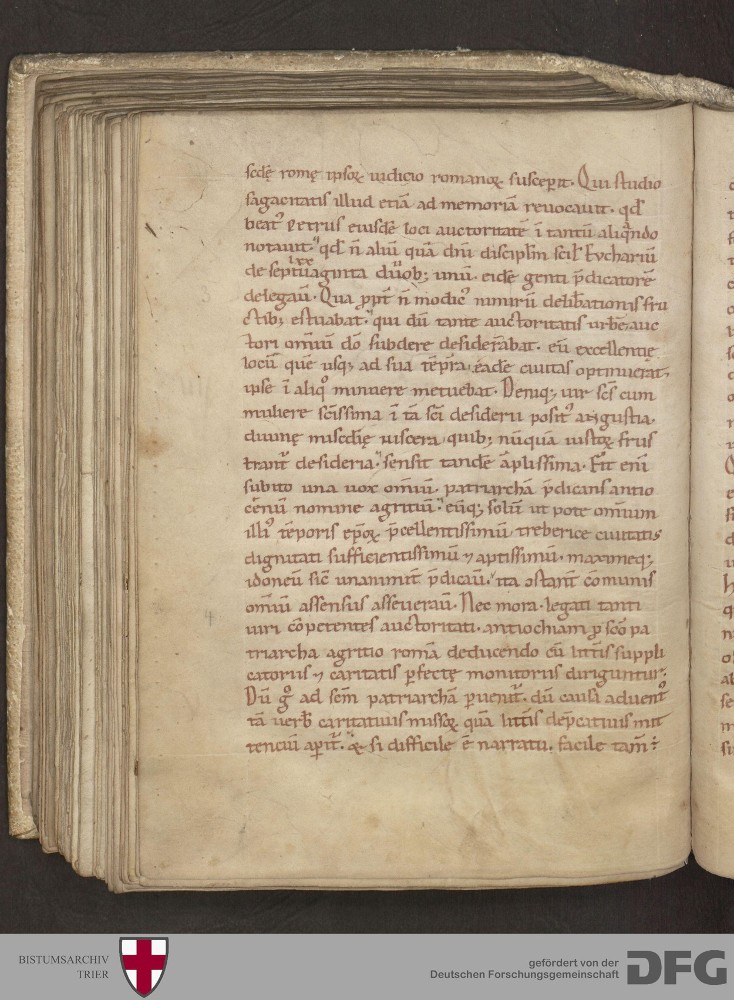 scdę romę ipsoꝝ iudicio romanoꝝ suscepit. Qui studio
sagacitatis illud etiā ad memoriā reuocauit. qd̄
beat᷒ Petrus eiusdē loci auctoritatē ī tantū aliqn̄do
notauit. qd̄ n̄ aliū quā dn̄i discipłm scił Euchariū
lxx
de septuaginta duob; unū. eidē genti p̄dicatorē
delegauit. Qua ꝓpt̄ n̄ modic᷒ nimirū delib̄ationis fru
ctib; estuabat. qui dū tante auctoritatis urbē auc
tori omīū dō subdere desiderabat. eū excellentię
locū quē usq; ad sua tēpra eadē ciuitas optinuerat,
ipse ī aliq° minuere metuebat. Deniq; uir scs̄ cum
muliere scīssima ī tā scī desiderii posit᷒ angustia.
diuinę misc̄dię uiscera quib; nūquā iustoꝝ frus
trant᷒ desideria. sensit tandē āplissima. Fit enī
subito una uox omīū. patriarchā p̄dicans antio
cenū nomine agritiū. eūq; solū ut pote omīum
illi᷒ tēporis ep̄oꝝ p̄cellentissimū treberice ciuitatis
dignitati sufficientissimū ⁊ aptissimū. maximeq;
idoneū sic̄ unanimit̄ p̄dicauit. ita ostant̄ cōmunis
omīū assensus asseuerauit. Nec mora. legati tanti
uiri cōpetentes auctoritati. antiochiam ꝓ scō pa
triarcha agritio romā deducendo cū litt̄is suppli
catoriis ⁊ caritatis ꝑfectę monitoriis diriguntur.
Dū g° ad scm̄ patriarchā ꝑuenit᷒. dū causā aduent᷒
tā uerb̄ caritatiuis missoꝝ quā litt̄is dep̄catiuis mit
tenciū aperit᷒. & si difficile ē narratu. facile tam̄
4
BISTUMSARCHIV
TRIER
gefördert von der
Deutschen Forschungsgemeinschaft
DFG